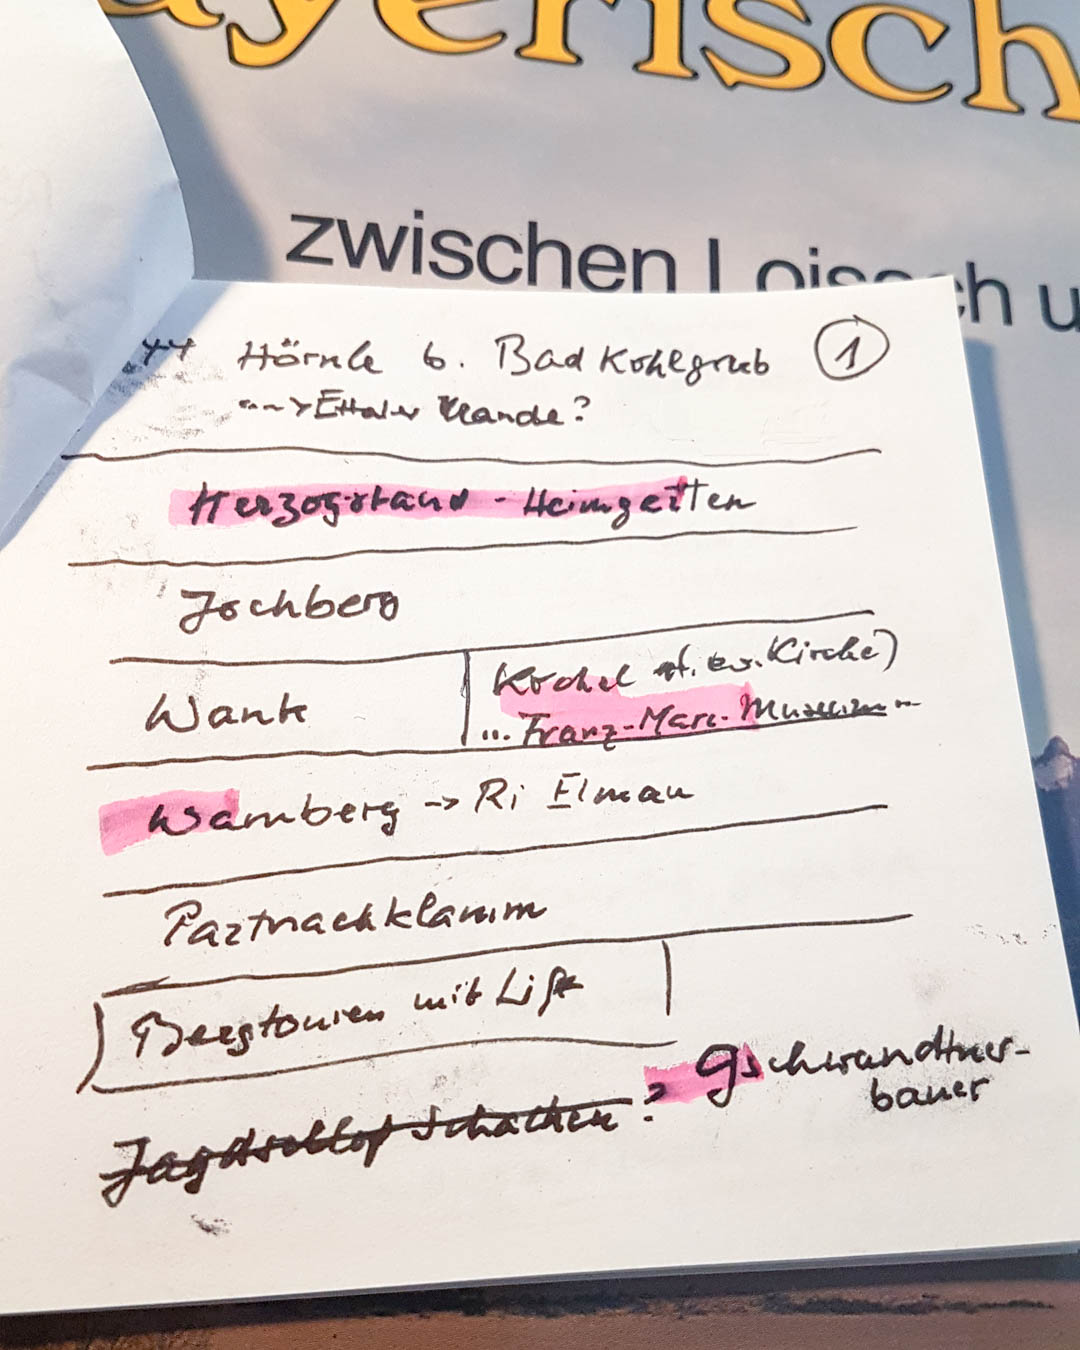 ayerisch
zwischen Loisach u
Hörnle b. Bad Kohlgrub ①
---> Ettaler Mandl?
Herzogstand - Heimgarten
Jochberg
Wank
Kochel ev. Kirche)
... Franz-Marc-Museum ...
Wamberg -> Ri Elmau
Partnachklamm
Bergtouren mit Lift
Jagdschloß Schachen ? Gschwandtner-
bauer